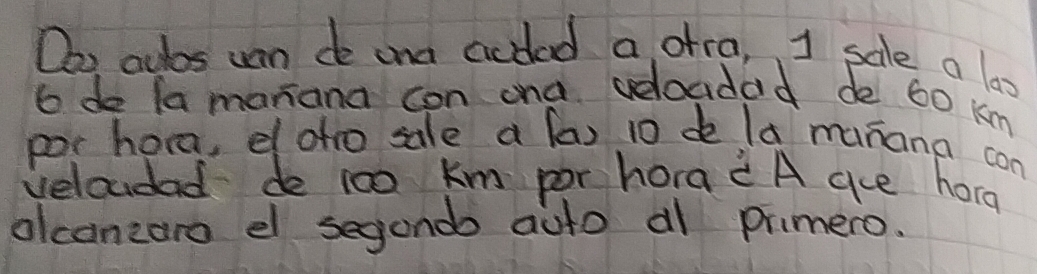 Dos autos van de una ciudad a otra, 1 sale a las
6 de la mañana con una velocidad de 60 Km
por hora, el otro sale a las 10 de la mañana con
velocidad de 100 Km por hora ¿A que hora
alcanzara el segundo auto al primero.